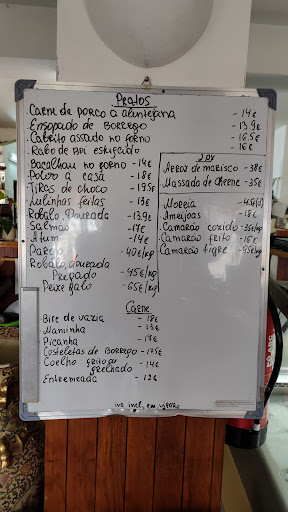 PRATOS
CARNE de PORCO à Alentejana - 14€
Ensopado de BORREGO - 13.9€
Cabrito assado no forno - 16.5€
Rabo de boi estufado - 16€
Bacalhau no forno - 14€
Polvo à casa - 18€
Tiras de choco - 19.5€
Lulinhas fritas - 13€
Robalo, Dourada - 13.9€
Salmão - 17€
Atum - 14€
Pargo - 42€/kg
Robalo, dourada
Pregado - 45€/kg
Peixe galo - 65€/kg
2 PX
Arroz de marisco - 38€
Massada de cherne - 35€
Moreia
Ameijoas - 18€
Camarão cozido - 35€/kg
Camarão frito - 16€
Camarão tigre - 95€/kg
Carne
Bife de vazia - 18€
Maminha - 13€
Picanha - 17€
Costeletas de BORREGO - 17.5€
Coelho frito ou grelhado - 14€
Entremeada - 12€
iva incl. em vigor